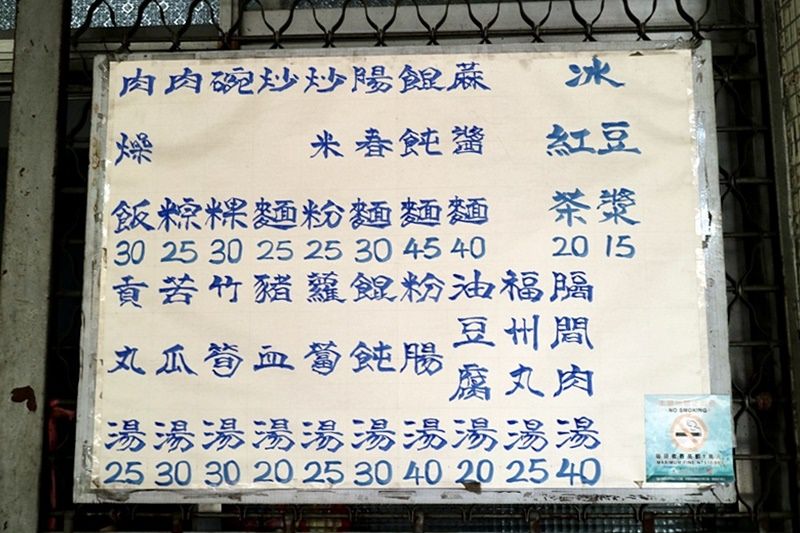 肉燥飯 30
肉粽 25
碗粿 30
炒麵 25
炒米粉 25
陽春麵 30
餛飩麵 45
蔴醬麵 40
冰
紅茶 20
豆漿 15
貢丸湯 25
苦瓜湯 30
竹筍湯 30
豬血湯 20
蘿蔔湯 25
餛飩湯 30
粉腸湯 40
油豆腐湯 20
福州丸湯 25
膈間肉湯 40
NO SMOKING